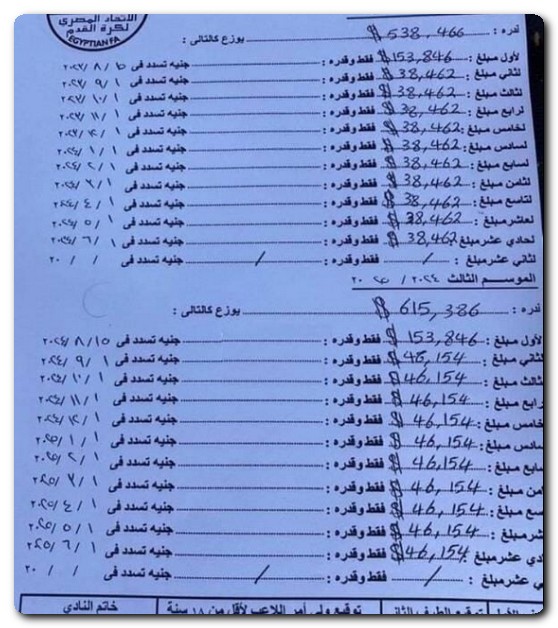 الاتحاد المصري
لكرة القدم
EGYPTIAN FA
قدره : $ 538,466 يوزع كالتالى :
لأول مبلغ : $153,846 فقط وقدره : جنيه تسدد فى ٢٠٢٣/٨/١٥
لثاني مبلغ : $38,462 فقط وقدره : جنيه تسدد فى ٢٠٢٣/٩/١
لثالث مبلغ : $38,462 فقط وقدره : جنيه تسدد فى ٢٠٢٣/١٠/١
لرابع مبلغ : $38,462 فقط وقدره : جنيه تسدد فى ٢٠٢٣/١١/١
لخامس مبلغ : $38,462 فقط وقدره : جنيه تسدد فى ٢٠٢٣/١٢/١
لسادس مبلغ : $38,462 فقط وقدره : جنيه تسدد فى ٢٠٢٤/١/١
لسابع مبلغ : $38,462 فقط وقدره : جنيه تسدد فى ٢٠٢٤/٢/١
لثامن مبلغ : $38,462 فقط وقدره : جنيه تسدد فى ٢٠٢٤/٣/١
لتاسع مبلغ : $38,462 فقط وقدره : جنيه تسدد فى ٢٠٢٤/٤/١
لعاشر مبلغ : $38,462 فقط وقدره : جنيه تسدد فى ٢٠٢٤/٥/١
لحادي عشر مبلغ : $38,462 فقط وقدره : جنيه تسدد فى ٢٠٢٤/٦/١
لثاني عشر مبلغ : / فقط وقدره : / جنيه تسدد فى / / ٢٠
الموسم الثالث ٢٠٢٤ / ٢٠٢٥
قدره : $ 615,386 يوزع كالتالى :
لأول مبلغ : $ 153,846 فقط وقدره : جنيه تسدد فى ٢٠٢٤/٨/١٥
لثاني مبلغ : $46,154 فقط وقدره : جنيه تسدد فى ٢٠٢٤/٩/١
لثالث مبلغ : $46,154 فقط وقدره : جنيه تسدد فى ٢٠٢٤/١٠/١
رابع مبلغ : $46,154 فقط وقدره : جنيه تسدد فى ٢٠٢٤/١١/١
خامس مبلغ : $46,154 فقط وقدره : جنيه تسدد فى ٢٠٢٤/١٢/١
سادس مبلغ : $46,154 فقط وقدره : جنيه تسدد فى ٢٠٢٥/١/١
سابع مبلغ : $46,154 فقط وقدره : جنيه تسدد فى ٢٠٢٥/٢/١
امن مبلغ : $46,154 فقط وقدره : جنيه تسدد فى ٢٠٢٥/٣/١
سع مبلغ : $46,154 فقط وقدره : جنيه تسدد فى ٢٠٢٥/٤/١
شر مبلغ : $46,154 فقط وقدره : جنيه تسدد فى ٢٠٢٥/٥/١
دي عشر مبلغ : $46,154 فقط وقدره : جنيه تسدد فى ٢٠٢٥/٦/١
ي عشر مبلغ : / فقط وقدره : / جنيه تسدد فى / / ٢٠
توقيع الطرف الثاني توقيع ولي أمر اللاعب لأقل من ١٨ سنة خاتم النادي